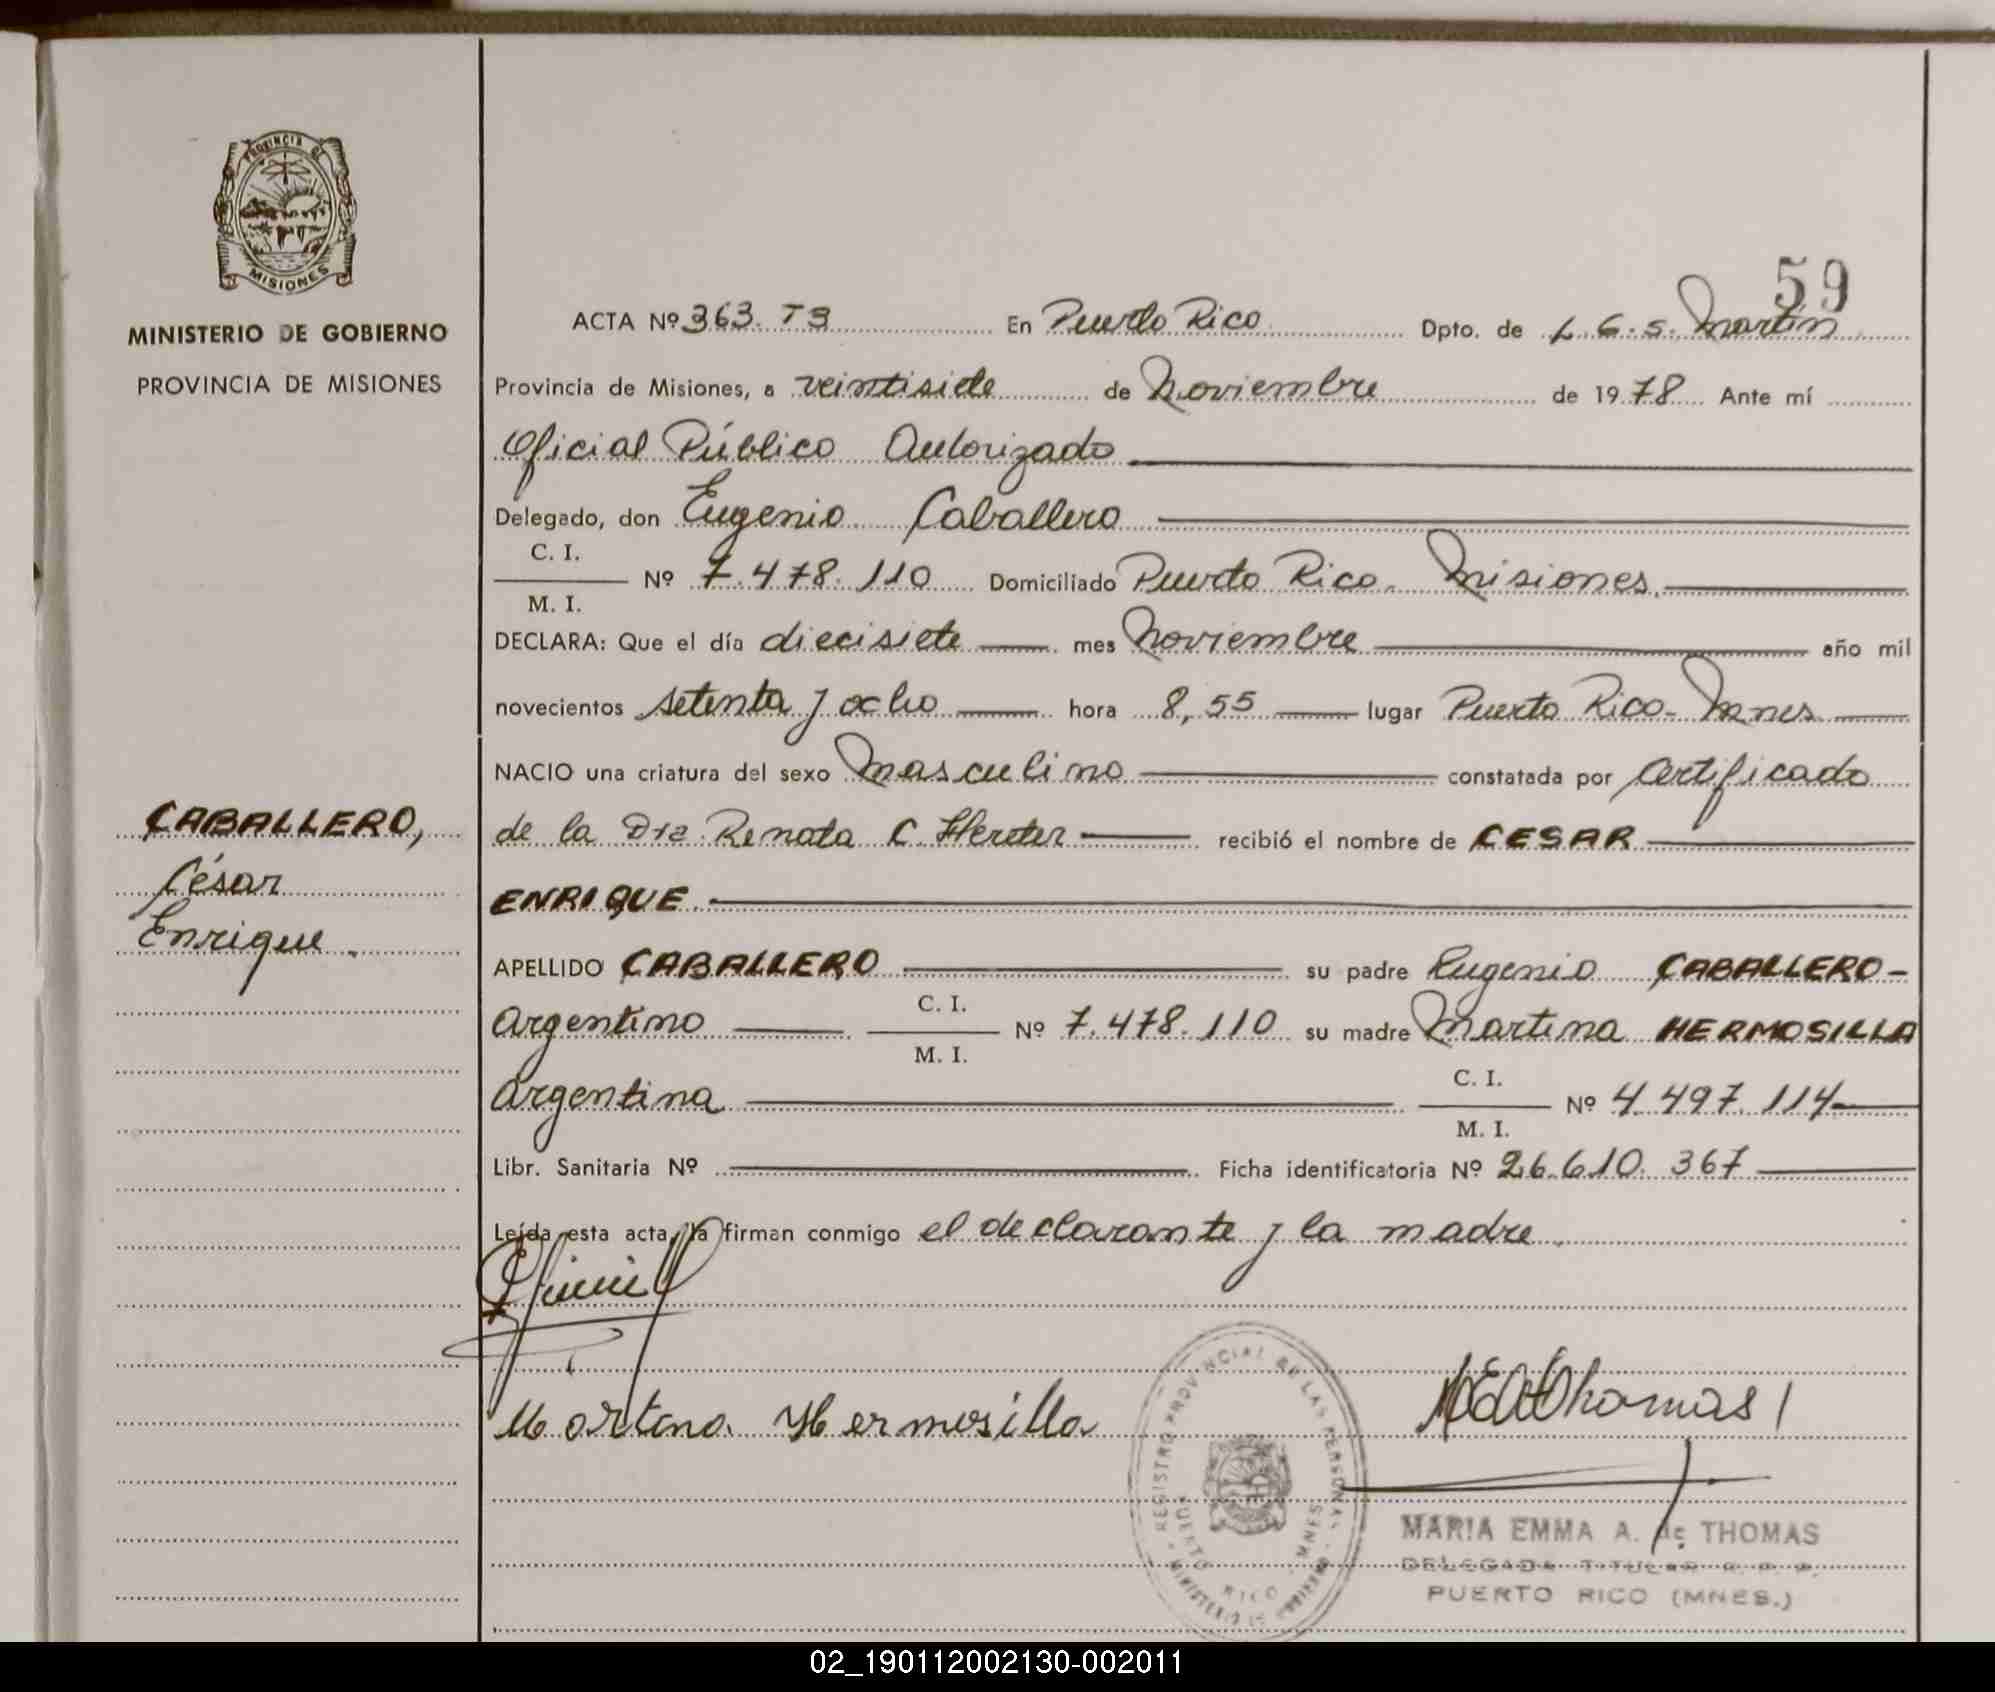 PROVINCIA DE
MISIONES
MINISTERIO DE GOBIERNO
PROVINCIA DE MISIONES
59
ACTA Nº 363. T3 En Puerto Rico Dpto. de L. G. S. Martín
Provincia de Misiones, a veintisiete de Noviembre de 1978 Ante mí
Oficial Público Autorizado
Delegado, don Eugenio Caballero
C. I.
Nº 7.478.110 Domiciliado Puerto Rico. Misiones.
M. I.
DECLARA: Que el día diecisiete mes Noviembre año mil
novecientos setenta y ocho hora 8,55 lugar Puerto Rico - Mnes
NACIO una criatura del sexo Masculino constatada por Certificado
de la Dra. Renata C. Herter recibió el nombre de CESAR
ENRIQUE
CABALLERO,
César
Enrique.
APELLIDO CABALLERO su padre Eugenio CABALLERO-
C. I.
Argentino Nº 7.478.110 su madre Martina HERMOSILLA
M. I.
C. I.
Argentina Nº 4.497.114
M. I.
Libr. Sanitaria Nº Ficha identificatoria Nº 26.610.367
Leída esta acta, la firman conmigo el declarante y la madre.
Martina Hermosilla
MEAdThomas
REGISTRO PROVINCIAL DE LAS PERSONAS
PUERTO RICO - MNES
MINISTERIO DE GOBIERNO
MARIA EMMA A. de THOMAS
DELEGADA TITULAR R. P. P.
PUERTO RICO (MNES.)
02_190112002130-002011